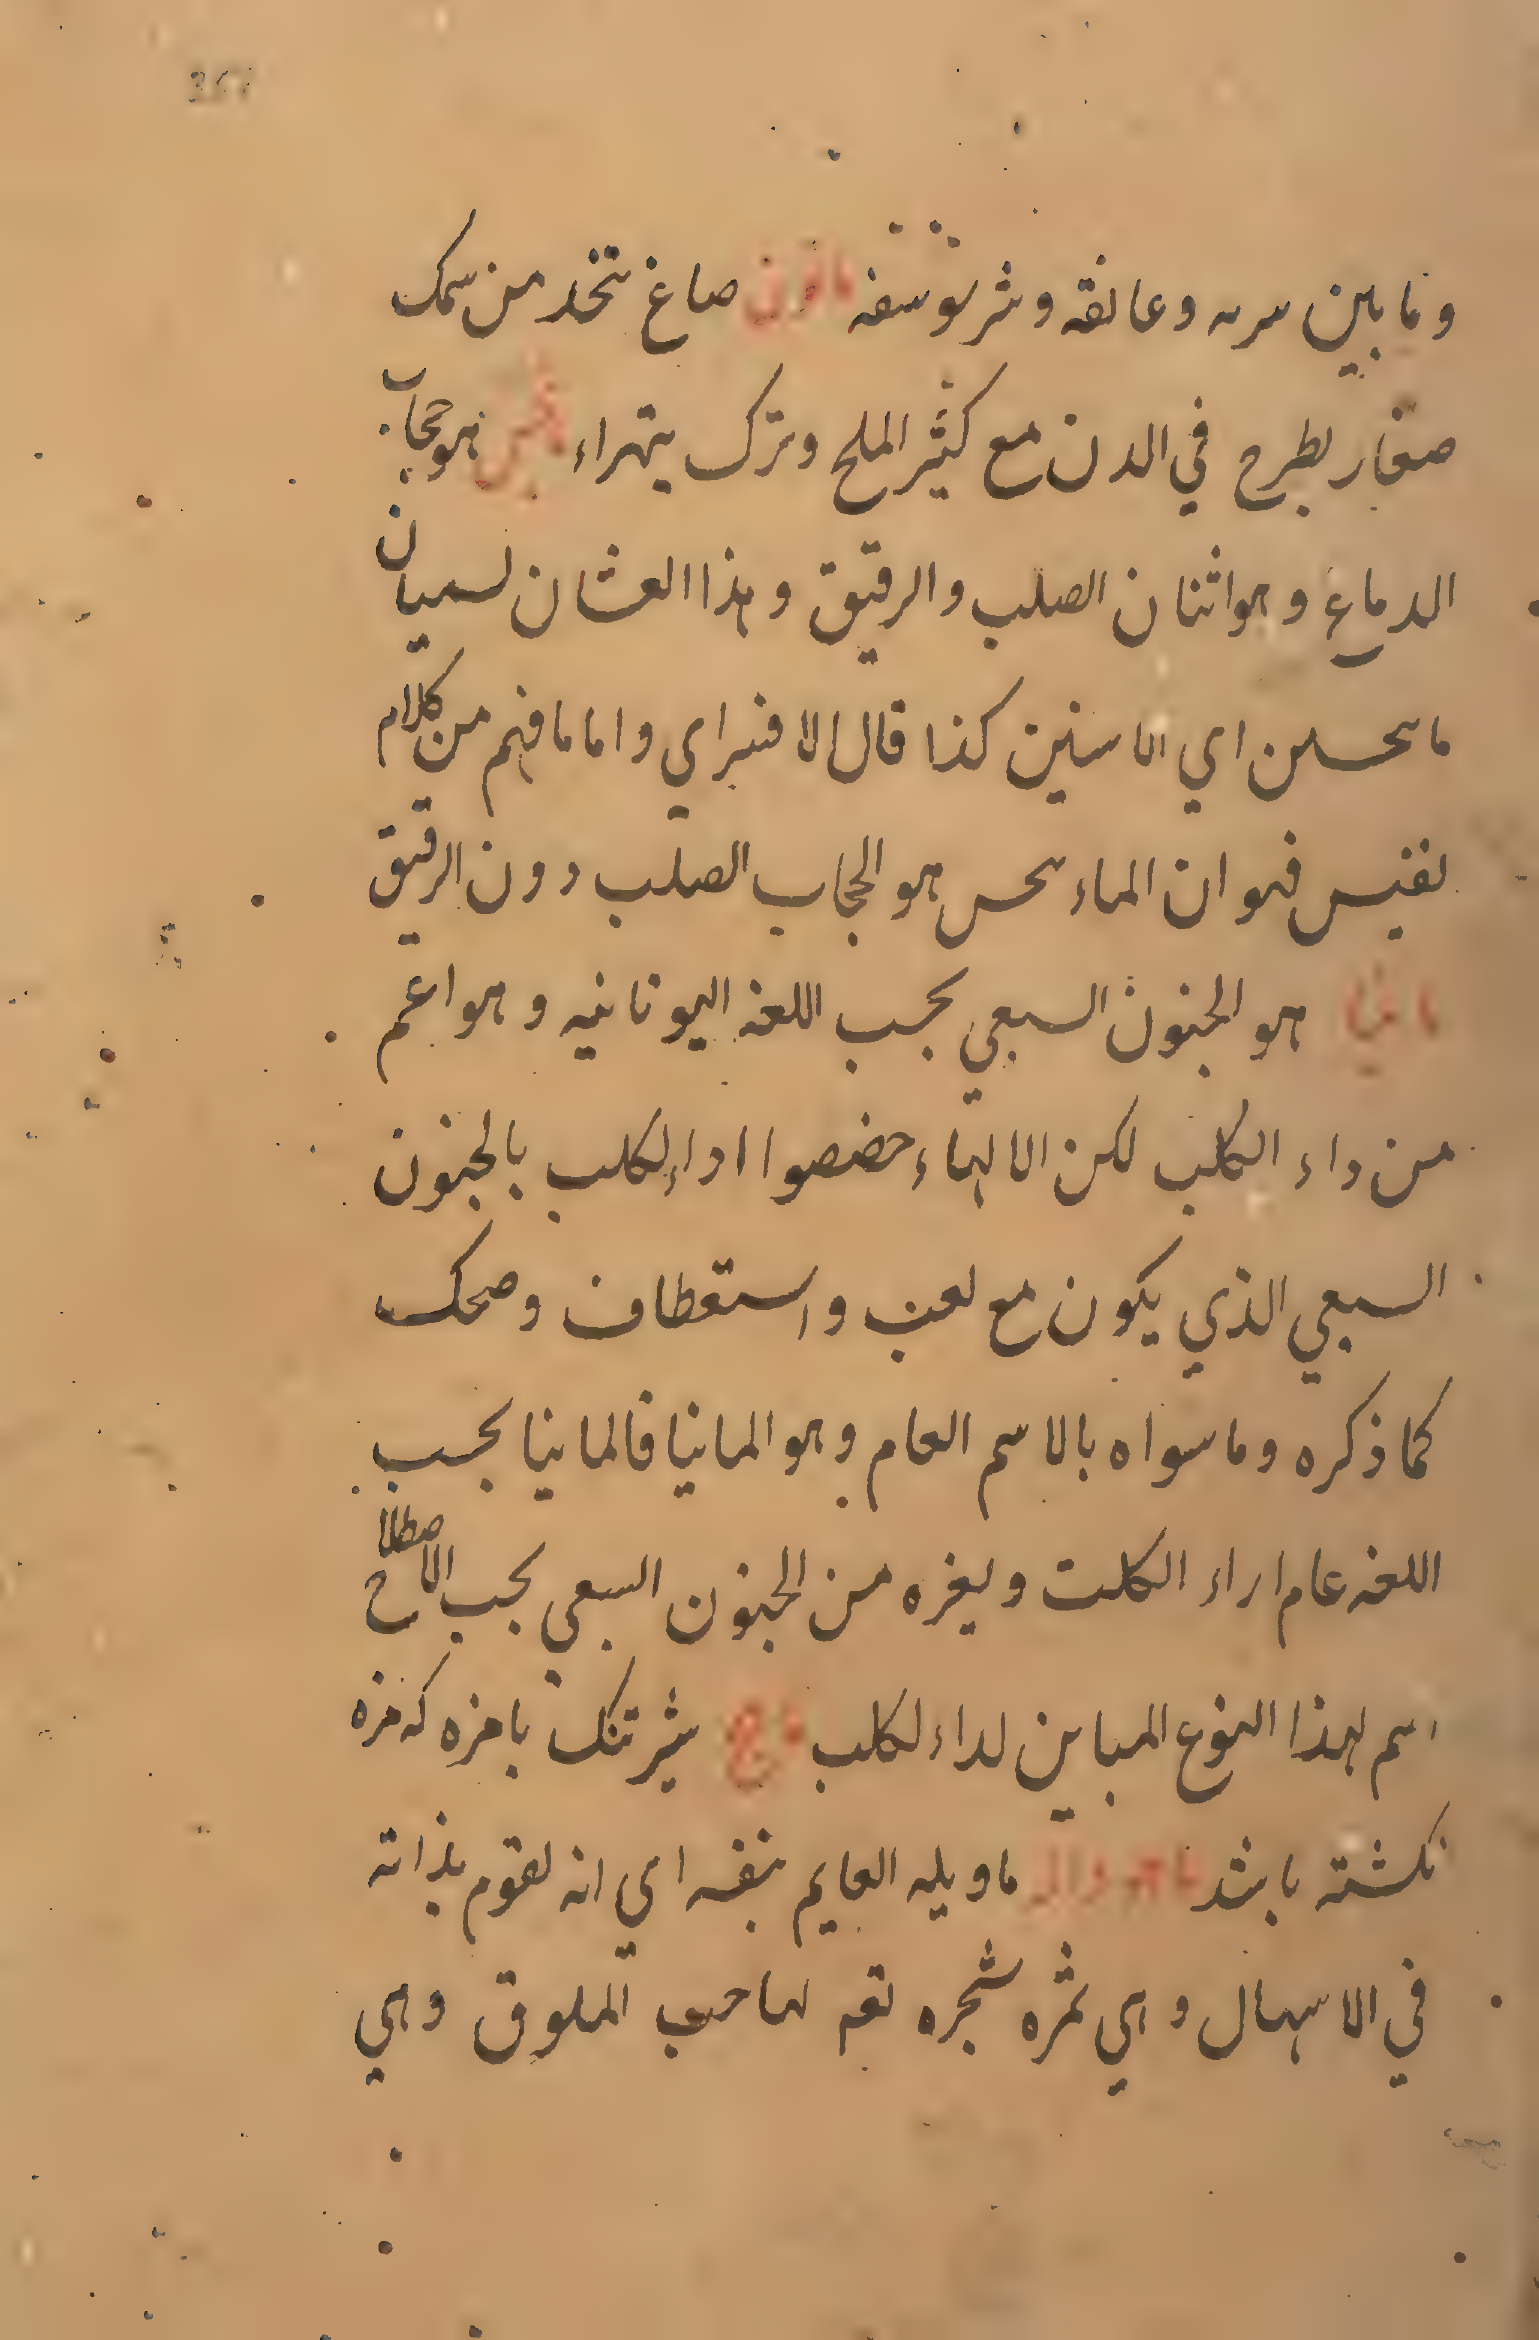 وما بين سره وعانقه وشرسوسفه صاغ تتخذ من سمك
صغار يطرح في الدن مع كثير الملح وترك يتهراء هو حجاب
الدماغ وهو اثنان الصلب والرقيق وهذا العشان لسميان
ماسحسن اي الاسنين كذا قال الاقسراي واما ما فهم من كلام
نفيس فهو ان الماء سحس هو الحجاب الصلب دون الرقيق
مانيا هو الجنون السبعي بحسب اللغه اليونانيه وهو اعم
من داء الكلب لكن الالهاء خصصوا اداء لكلب بالجنون
السبعي الذي يكون مع لعب واستعطاف وضحك
كما ذكره وما سواه بالاسم العام وهو المانيا فالمانيا بحسب
اللغه عام اراء الكلب وليغره من الجنون السبعي بحسب الاصطلاح
اسم لهذا النوع المباين لداء لكلب شير تنك بامزه كه مزه
نكشته باشد ماهودانه ماويله القايم بنفسه اي انه لقوم بذاته
في الاسهال وهي ثمره شجره تقم لها حب الملوق وهي